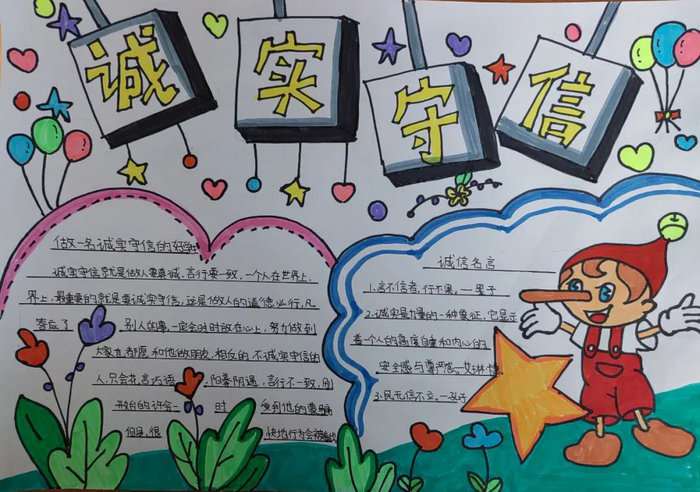 诚实守信
做一名诚实守信的好
诚实守信就是做人要真诚,言行要一致,一个人在世界上,
界上,最重要的就是要诚实守信,这是做人的道德必行,凡
答应了 别人的事,一定会时时放在心上,努力做到
大家方都愿 和他做朋友,相反的,不诚实守信的
人,只会花言巧语 ,阳奉阴违,言行不一致,刚
开始的许会 时 受到他的蒙骗
但是,很 快他行
诚信名言
1.言不信者,行不果。—墨子
2.诚实是力量的一种象征,它显示
着一个人的高度自重和内心的
安全感与尊严感—艾琳·
3.民无信不立.—孔子